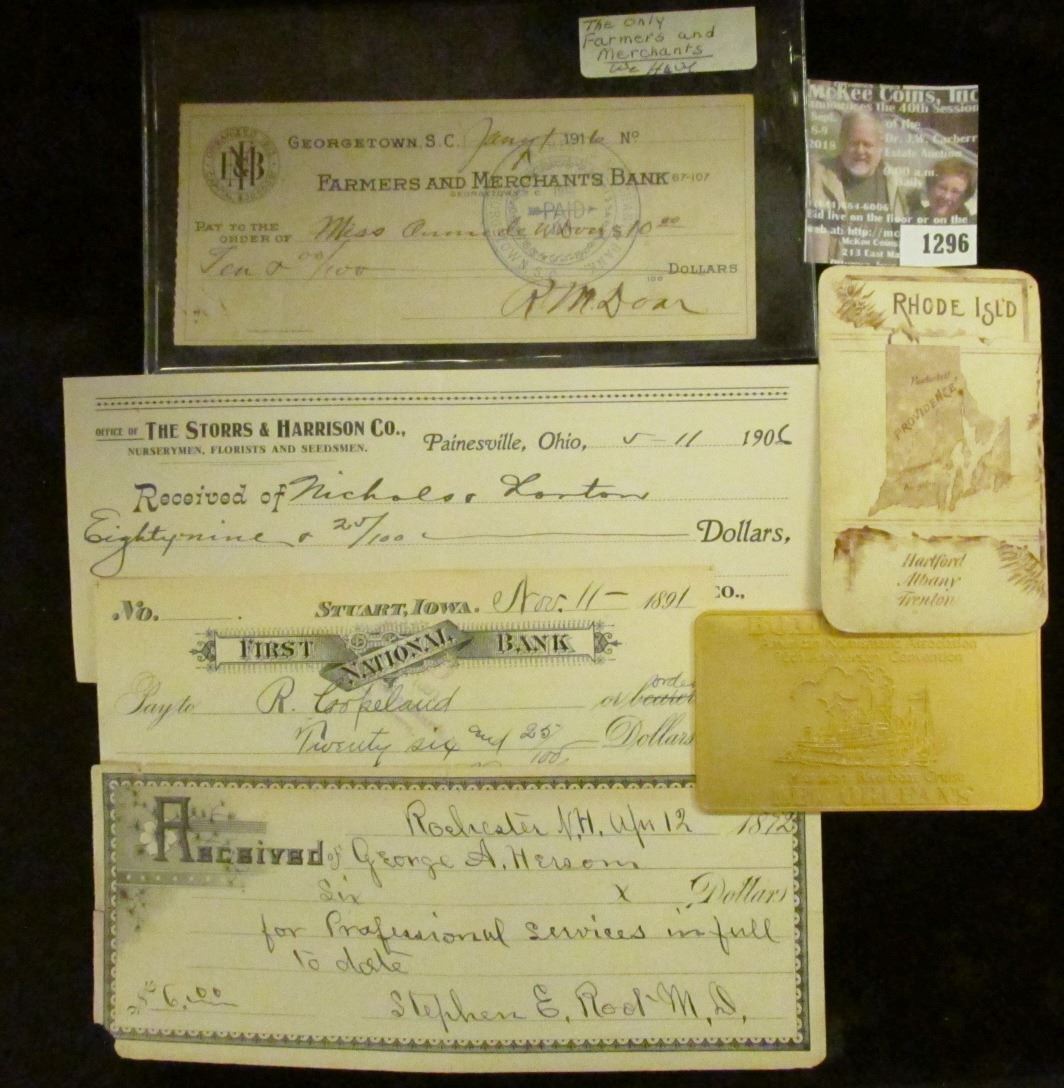 The Only
Farmers and
Merchants
We Have
McKee Coins, Inc
announces the 40th Session
Sept. of the
8-9 Dr. J.W. Carberr
2018 Estate Auction
a.m.
Daily
Bid live on the floor or on the
web at: http://mc
McKee Coins
213 East Ma
1296
GEORGETOWN, S.C. 1916 No
FARMERS AND MERCHANTS BANK 67-107
GEORGETOWN, S.C.
PAID
PAY TO THE
ORDER OF Miss $10 00
Ten & 00/100 DOLLARS
R. M. Doar
RHODE ISL'D
Pawtucket
PROVIDENCE
Hartford
Albany
Trenton
OFFICE OF THE STORRS & HARRISON CO.,
NURSERYMEN, FLORISTS AND SEEDSMEN.
Painesville, Ohio, 5-11 1906
Received of Nichols & Lorton
Eighty nine & 25/100 Dollars,
CO.,
No. STUART, IOWA. Nov. 11- 1891
FIRST NATIONAL BANK
Pay to R. Copeland or bearer order
Twenty six and 25/100 Dollars
Convention
Cruise
NEW ORLEANS
Rochester N.H. Apr 12 1892
Received of George A. Hersom
Six x Dollars
for Professional services in full
to date
$ 6.00
Stephen E. Root M.D.